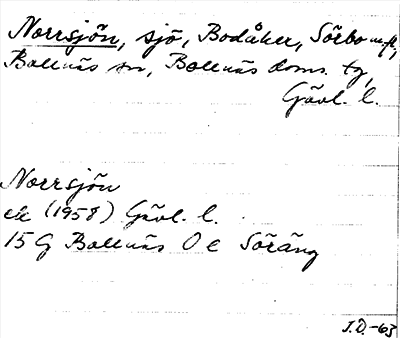 Norrsjön, sjö, Bodåker, Sörbo m.fl,
Bollnäs sn, Bollnäs doms. tg,
Gävl. l.
Norrsjön
ek (1958) Gävl. l.
15 G Bollnäs O e Söräng
J.Ö.-63